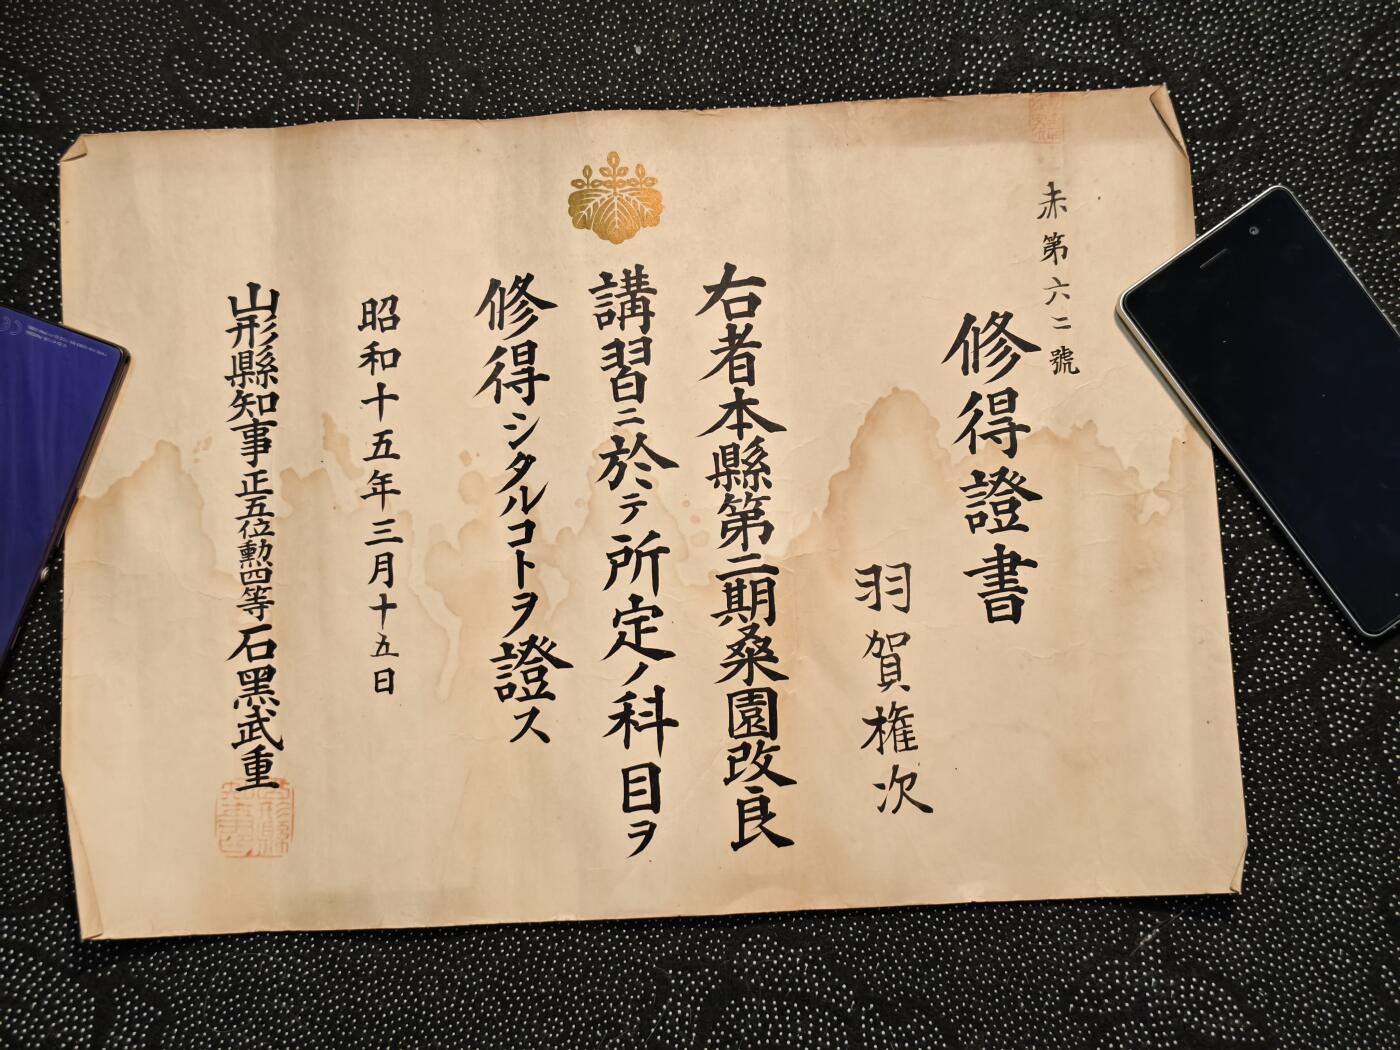 赤第六二號
修得證書
羽賀権次
右者本縣第二期桑園改良
講習ニ於テ所定ノ科目ヲ
修得シタルコトヲ證ス
昭和十五年三月十五日
山形縣知事正五位勲四等石黑武重